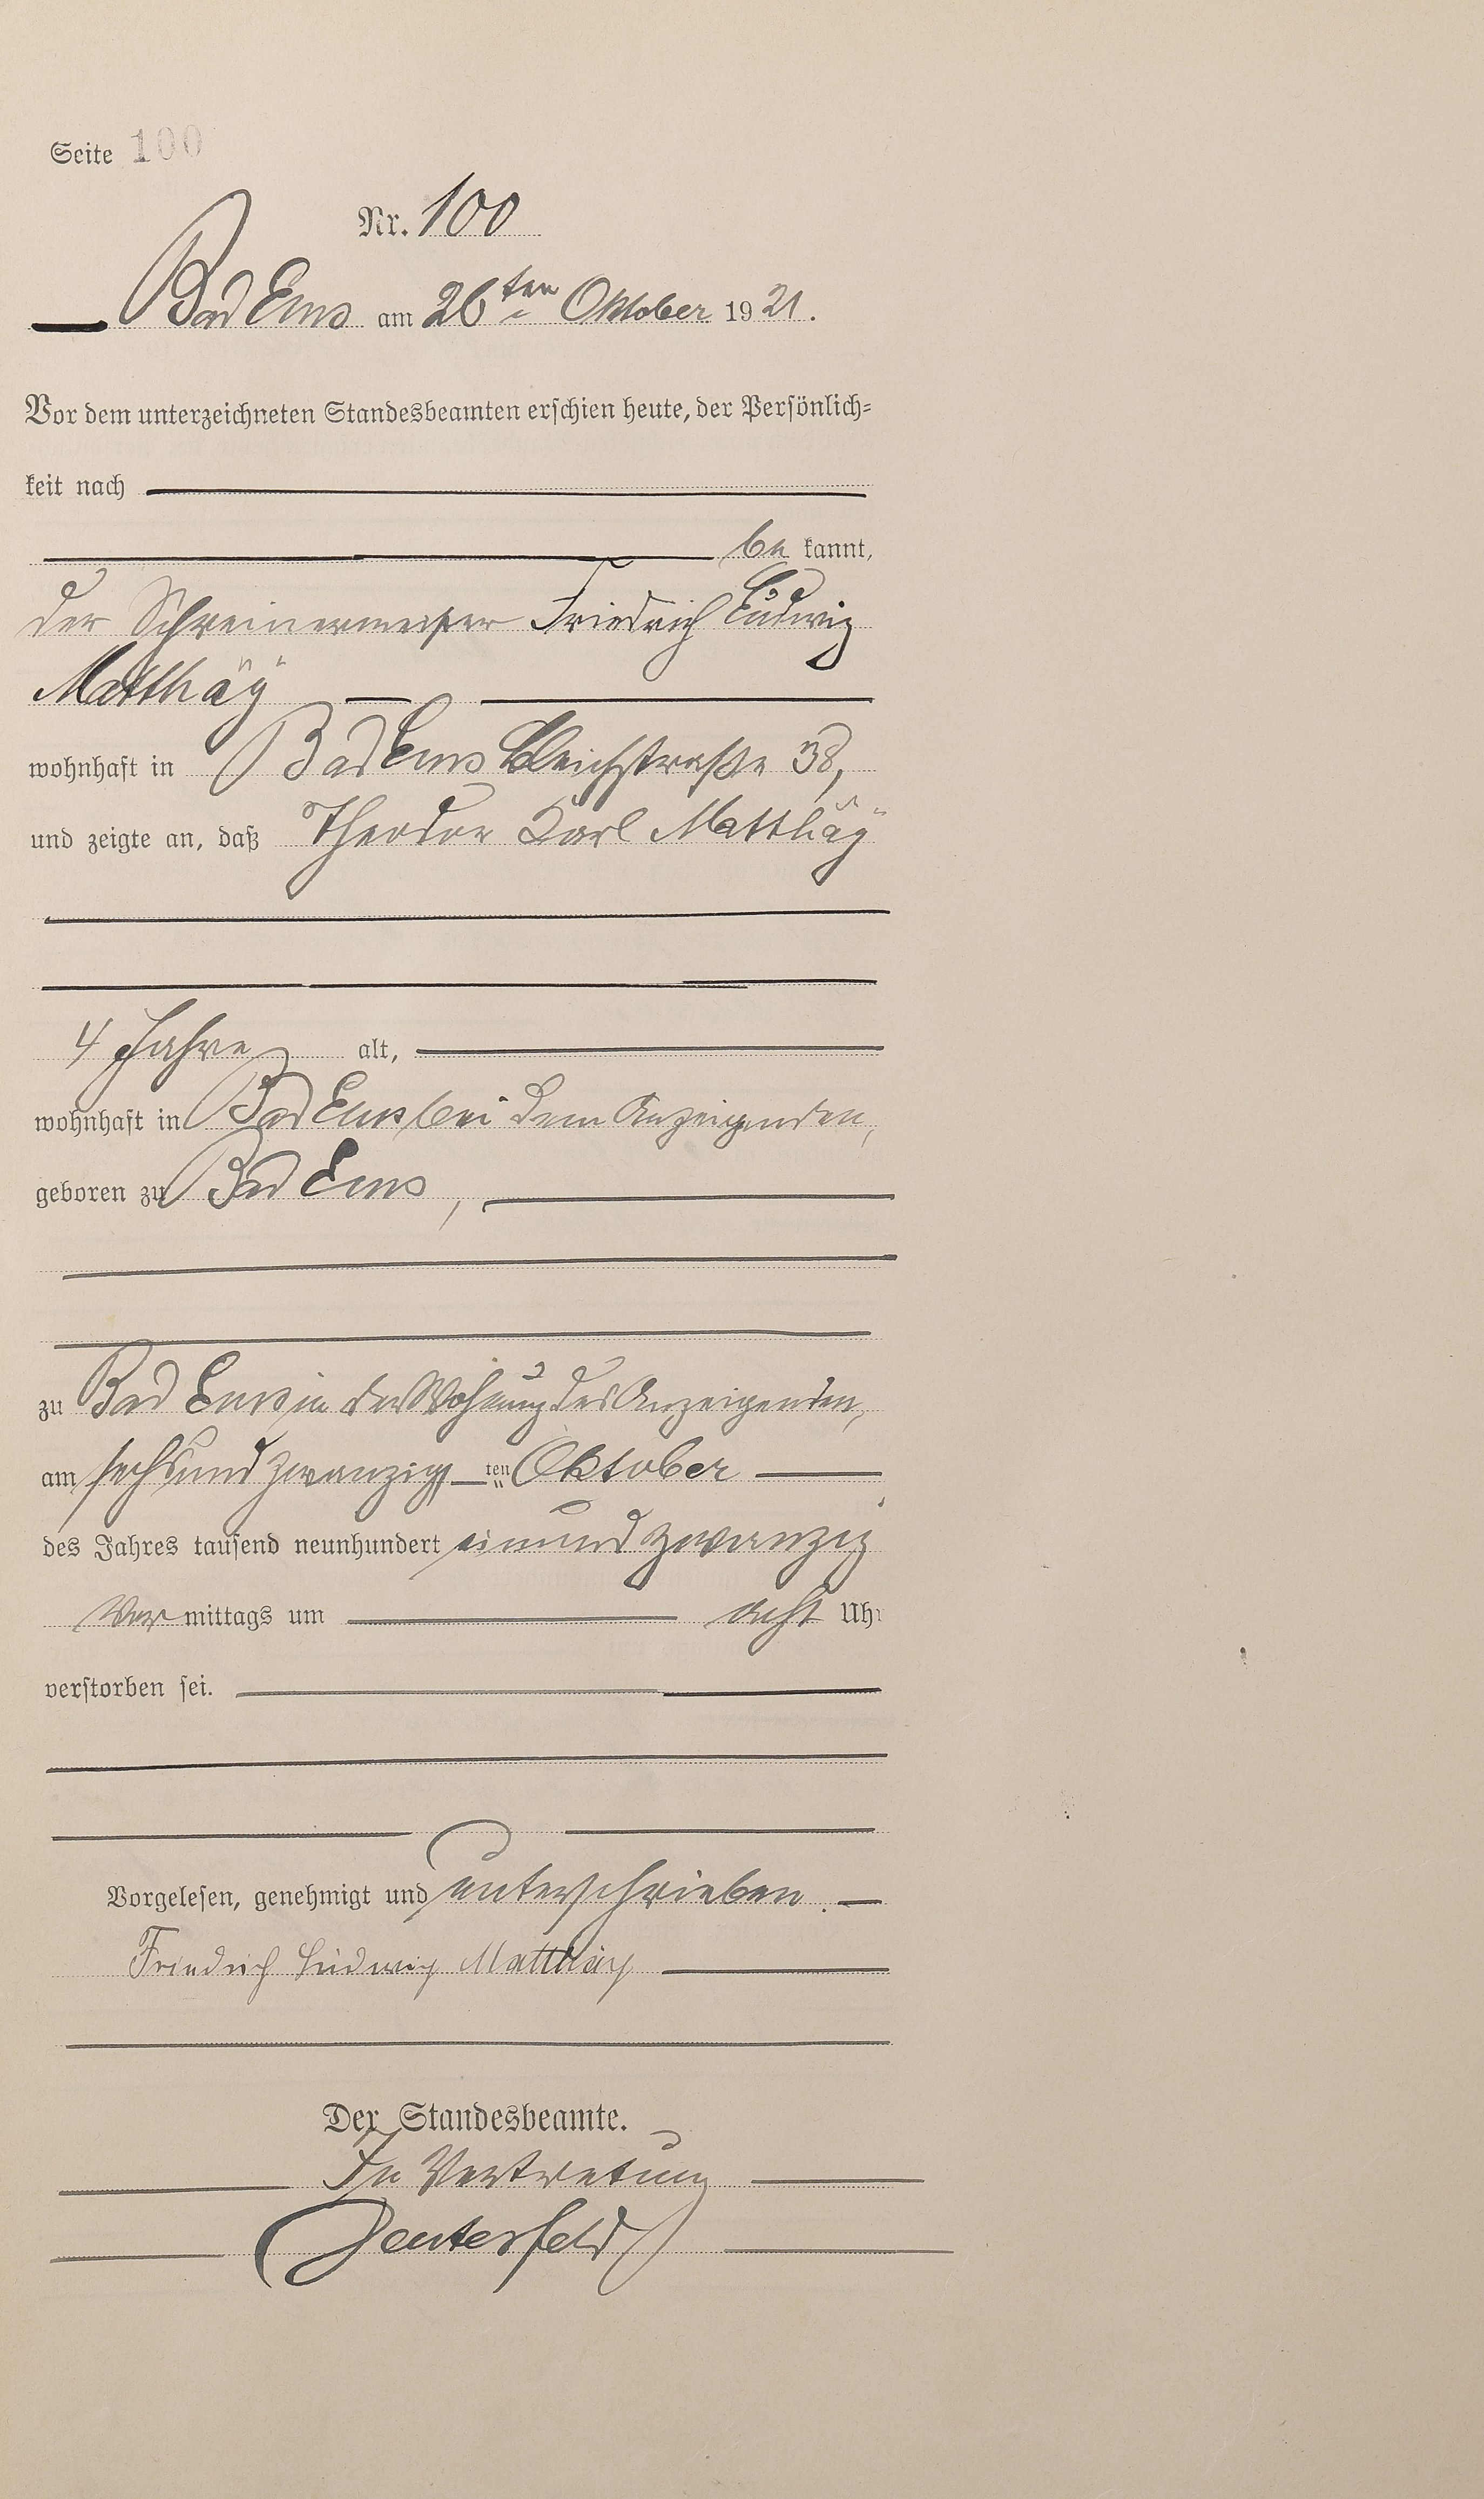 Seite 100
Nr. 100
Bad Ems am 26ten Oktober 1921.
Vor dem unterzeichneten Standesbeamten erschien heute, der Persönlich-
keit nach
be kannt,
der Schreinermeister Friedrich Ludwig
Matthäy
wohnhaft in Bad Ems Bleichstraße 38,
und zeigte an, daß Theodor Karl Matthäy
4 Jahre alt,
wohnhaft in Bad Ems bei dem Anzeigenden,
geboren zu Bad Ems,
zu Bad Ems in der Wohnung des Anzeigenden,
am sechsundzwanzigsten Oktober
des Jahres tausend neunhundert einundzwanzig
Vor mittags um acht Uhr
verstorben sei.
Vorgelesen, genehmigt und unterschrieben.
Friedrich Ludwig Matthäy
Der Standesbeamte.
In Vertretung